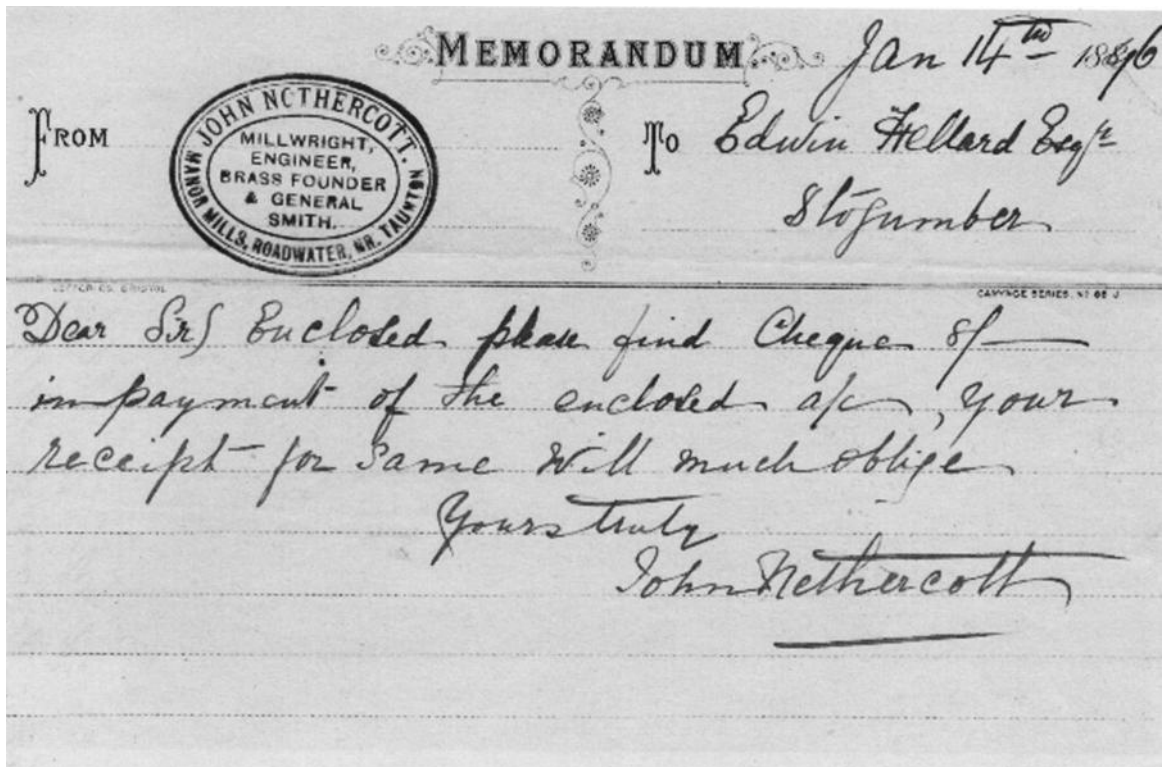 MEMORANDUM
Jan 14th
FROM
JOHN NETHERCOTT.
MILLWRIGHT,
ENGINEER,
BRASS FOUNDER
& GENERAL
SMITH.
MANOR MILLS, ROADWATER, NR. TAUNTON
To Edwin Hellard Esqr
Stogumber
CANYNGE SERIES, No 66 J.
Dear Sir) Enclosed please find Cheque 8/-
in payment of the enclosed a/c, your
receipt for same will much oblige
Yours truly
John Nethercott